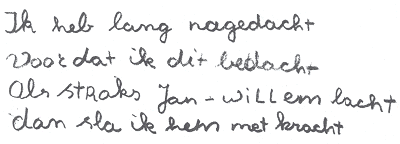 Ik heb lang nagedacht
Voordat ik dit bedacht
Als straks Jan-Willem lacht
dan sla ik hem met kracht